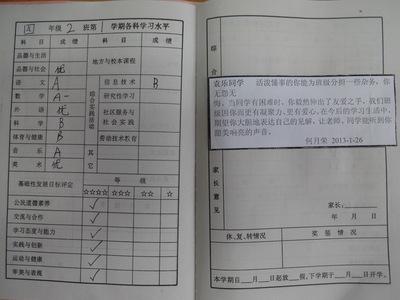 四 年级 2 班第 学期各科学习水平
科 目 成 绩 科 目 成 绩
品德与生活 地方与校本课程
品德与社会 优
语 文 A 综合实践活动 信息技术 B
数 学 A- 研究性学习
外 语 优 社区服务与社会实践
科 学 B
体育与健康 B 劳动技术教育
音 乐 A 其它
美 术 优
基础性发展目标评定 等 级
☆☆☆☆ ☆☆☆ ☆☆ ☆
公民道德素养 ✓
交流与合作 ✓
学习态度与能力 ✓
实践与创新 ✓
运动与健康 ✓
审美与表现 ✓
综合
袁乐同学 活泼懂事的你能为班级分担一些杂务,你
无怨无
悔。当同学有困难时,你毅然伸出了友爱之手。我们班
级因你而更有凝聚力、更有爱心。在今后的学习生活中,
期望你大胆地表达自己的见解,让老师、同学能听到你
甜美响亮的声音。
何月荣 2013-1-26
家长意见
家长:
年 月 日
休、复、转情况 奖惩情况
本学期自 月 日起放 假,下学期于 月 日开学。